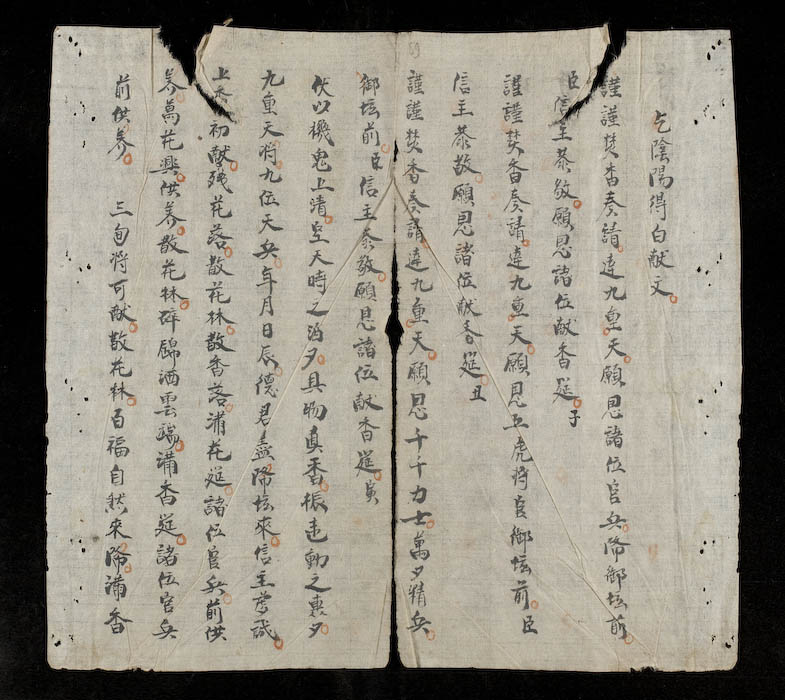 乞陰陽得白献文
謹謹焚香奏請達九重天願恩諸位官兵降御坛前
臣信主恭敬願恩諸位献香筵子
謹謹焚香奏請達九重天願恩五虎将官御坛前臣
信主恭敬願恩諸位献香筵丑
謹謹焚香奏請達九重天願恩千千力士萬夕精兵
御坛前臣信主恭敬願恩諸位献香筵寅
伏以機鬼上清空天時之酒夕具物真香振走動之裏夕
九重天将九位天兵年月日辰德君盡降坛來信主虔誠
上香初献残花落散花林散香落滿花筵諸位官兵前供
养萬花樂供养散花林碎錦洒雲端滿香筵諸位官兵
前供养 三旬将可献散花林百福自然來降滿香